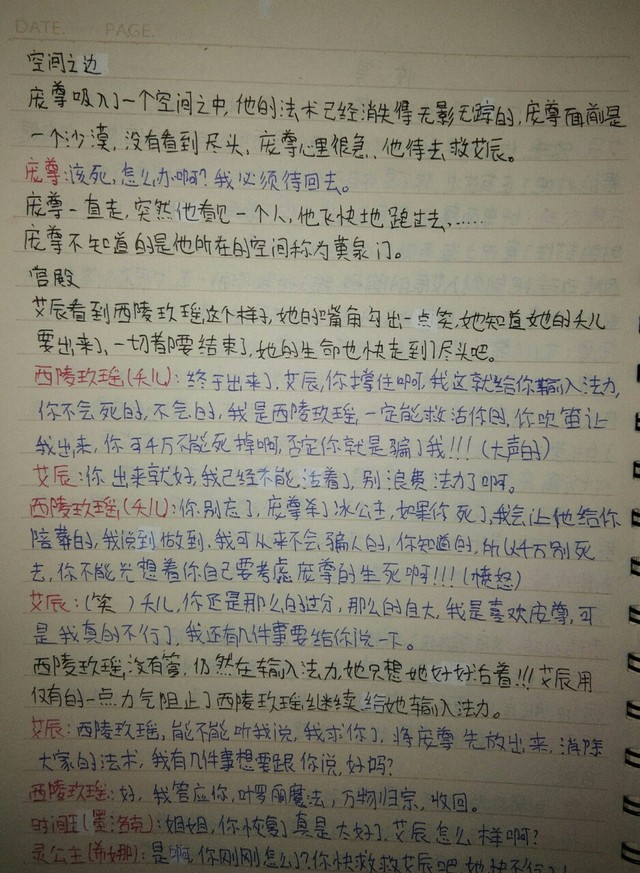 DATE. PAGE.
空间之边
庞尊吸入了一个空间之中,他的法术已经消失得无影无踪的,庞尊面前是
一个沙漠,没有看到尽头,庞尊心里很急,他待去救艾辰。
庞尊:该死,怎么办啊?我必须待回去。
庞尊一直走,突然他看见一个人,他飞快地跑过去,……
庞尊不知道的是他所在的空间称为黄泉门。
宫殿
艾辰看到西陵玖瑶这个样子,她的嘴角勾出一点笑,她知道她的夭儿
要出来了,一切都要结束了,她的生命也快走到了尽头吧。
西陵玖瑶(夭儿):终于出来了,艾辰,你撑住啊,我这就给你输入法力,
你不会死的,不会的,我是西陵玖瑶,一定能救活你的,你吹笛让
我出来,你可千万不能死掉啊,否定你就是骗了我!!!(大声的)
艾辰:你出来就好,我已经不能活着了,别浪费法力了啊。
西陵玖瑶(夭儿):你别忘了,庞尊杀了冰公主,如果你死了,我会让他给你
陪葬的,我说到做到,我可从来不会骗人的,你知道的,所以千万别死
去,你不能光想着你自己要考虑庞尊的生死啊!!!(愤怒)
艾辰:(笑)夭儿,你还是那么的过分,那么的自大,我是喜欢庞尊,可
是我真的不行了,我还有几件事要给你说一下。
西陵玖瑶没有管,仍然在输入法力,她只想她好好活着!!!艾辰用
仅有的一点力气阻止了西陵玖瑶继续给她输入法力。
艾辰:西陵玖瑶,能不能听我说,我求你了,将庞尊先放出来,消除
大家的法术,我有几件事想要跟你说,好吗?
西陵玖瑶:好,我答应你,叶罗丽魔法,万物归宗,收回。
时间王(墨洛克):姐姐,你恢复了真是太好了,艾辰怎么样啊?
灵公主(希娜):是啊,你刚刚怎么了?你快救救艾辰吧,她快不行了!